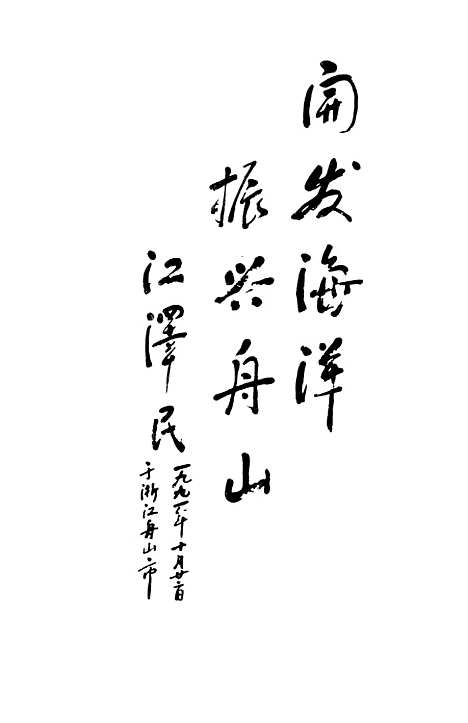 開发海洋
振兴舟山
江澤民
一九九一年十月廿二日
于浙江舟山市